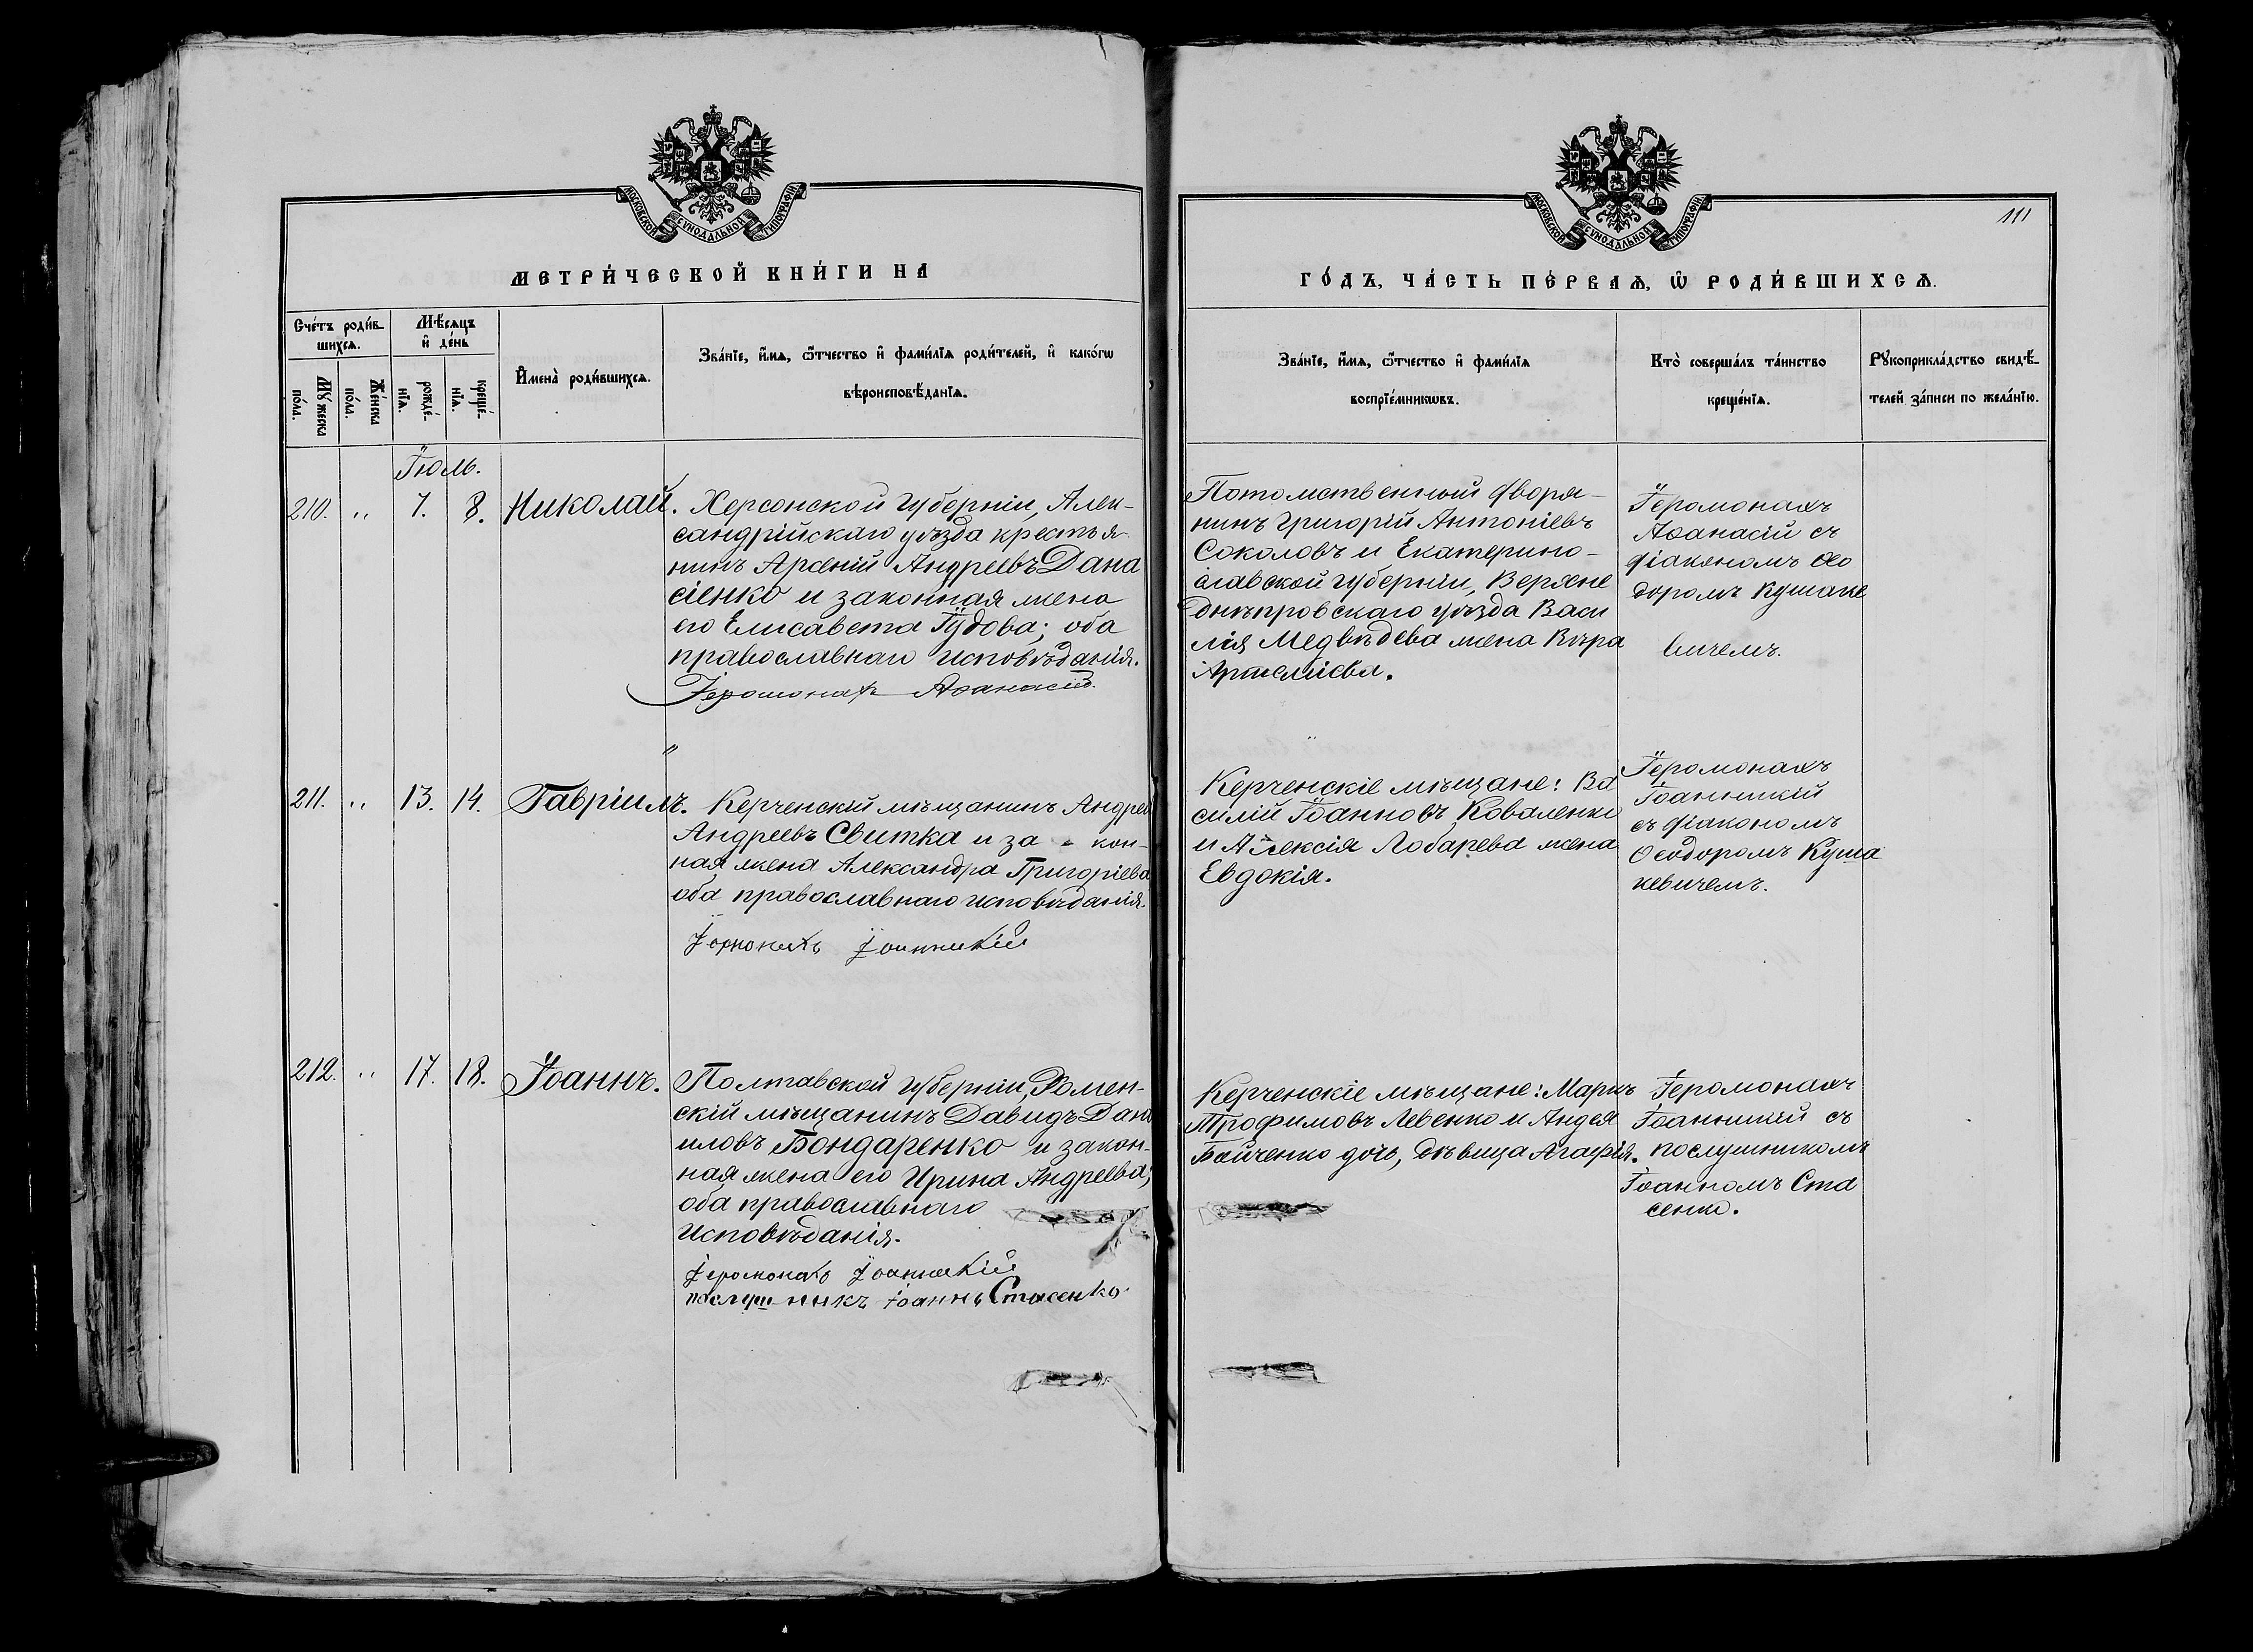 МОСКОВСКОЙ СУНОДАЛЬНОЙ ТИПОГРАФІИ
МЕТРИ́ЧЕСКОЙ КНИ́ГИ НА
Сче́тъ роди́в-
шихсѧ.
Мѣ́сѧцъ
и҆ де́нь
Мꙋ́жеска
по́ла.
Же́нска
по́ла.
рожде́-
нїѧ.
креще́-
нїѧ.
И҆мена̀ роди́вшихсѧ.
Зва́нїе, и҆́мѧ, ѻ҆́тчество и҆ фами́лїѧ роди́телей, и҆ како́гѡ
вѣроисповѣ́данїѧ.
Іюль.
210. „ 7. 8. Николай.
Херсонской губерніи, Алек-
сандрійскаго уѣзда крестья
нинъ Арсеній Андреевъ Дана
сіенко и законная жена
его Елисавета Гудова; оба
православнаго исповѣданія.
Іеромонахъ Аѳанасій.
211. „ 13. 14. Гавріилъ.
Керченскій мѣщанинъ Андрей
Андреевъ Свитка и за - кон-
ная жена Александра Григоріева
оба православнаго исповѣданія.
Іеромонахъ Іоанникій
212. „ 17. 18. Іоаннъ.
Полтавской губерніи, Ромен-
скій мѣщанинъ Давидъ Дани
иловъ Бондаренко и закон-
ная жена его Ирина Андреева;
оба православнаго
исповѣданія.
Іеромонахъ Іоанникій
послушникъ Іоаннъ Стасенко
МОСКОВСКОЙ СУНОДАЛЬНОЙ ТИПОГРАФІИ
111
ГО́ДЪ, ЧА́СТЬ ПЕ́РВАѦ, Ѡ҆ РОДИ́ВШИХСѦ.
Зва́нїе, и҆́мѧ, ѻ҆́тчество и҆ фами́лїѧ
воспрїе́мникѡвъ.
Кто̀ соверша́лъ та́инство
креще́нїѧ.
Рꙋкоприкла́дство свидѣ́-
телей за́писи по жела́нїю.
Потомственный дворя-
нинъ Григорій Антоніевъ
Соколовъ и Екатерино-
славской губерніи, Верхне
днѣпровскаго уѣзда Васи
лія Медвѣдева жена Вѣра
Іеромонахъ
Аѳанасій съ
діакономъ Ѳео
доромъ Кушаке
вичемъ.
Керченскіе мѣщане: Ва
силій Іоанновъ Коваленко
и Алексія Лобарева жена
Евдокія.
Іеромонахъ
Іоанникій
съ діакономъ
Ѳеодоромъ Куша
кевичемъ.
Керченскіе мѣщане: Маркъ
Трофимовъ Левенко и Андея
Бойченко дочь, дѣвица Агафія.
Іеромонахъ
Іоанникій съ
послушникомъ
Іоанномъ Ста
сенко.